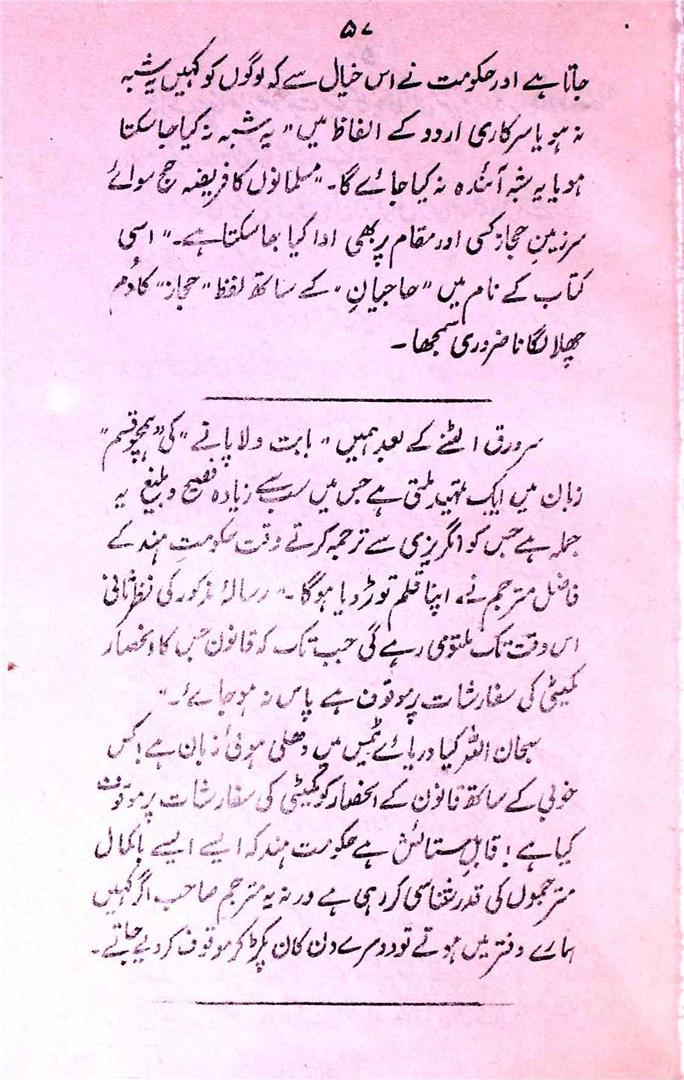 ۵۷
جاتا ہے اور حکومت نے اس خیال سے کہ لوگوں کو کہیں یہ شبہ
نہ ہو یا سرکاری اردو کے الفاظ میں "یہ شبہ نہ کیا جا سکتا
ہو یا یہ شبہ آئندہ نہ کیا جائے گا۔ "مسلمانوں کا فریضہ حج سوائے
سرزمینِ حجاز کسی اور مقام پر بھی ادا کیا جا سکتا ہے۔" اسی
کتاب کے نام میں "حاجیانِ" کے ساتھ لفظ "حجاز" کا دُم
چھلا لگانا ضروری سمجھا۔
سرورق الٹنے کے بعد ہمیں "بابت ولا پانے" کی "ہمچو قسم"
زبان میں ایک تمہید ملتی ہے جس میں سب سے زیادہ فصیح و بلیغ یہ
جملہ ہے جس کو انگریزی سے ترجمہ کرتے وقت حکومتِ ہند کے
فاضل مترجم نے، اپنا قلم توڑ دیا ہوگا۔ "رسالۂ مذکور کی نظر ثانی
اس وقت تک ملتوی رہے گی جب تک کہ قانون جس کا انحصار
کمیٹی کی سفارشات پر موقوف ہے پاس نہ ہو جائے۔"
سبحان اللہ کیا دریائے ٹیمس میں دھلی ہوئی زبان ہے! کس
خوبی کے ساتھ قانون کے انحصار کو کمیٹی کی سفارشات پر موقوف
کیا ہے! قابلِ ستائش ہے حکومت ہند کہ ایسے ایسے باکمال
مترجموں کی قدر شناسی کر رہی ہے ورنہ یہ مترجم صاحب اگر کہیں
ہمارے دفتر میں ہوتے تو دوسرے دن کان پکڑ کر موقوف کر دیے جاتے۔